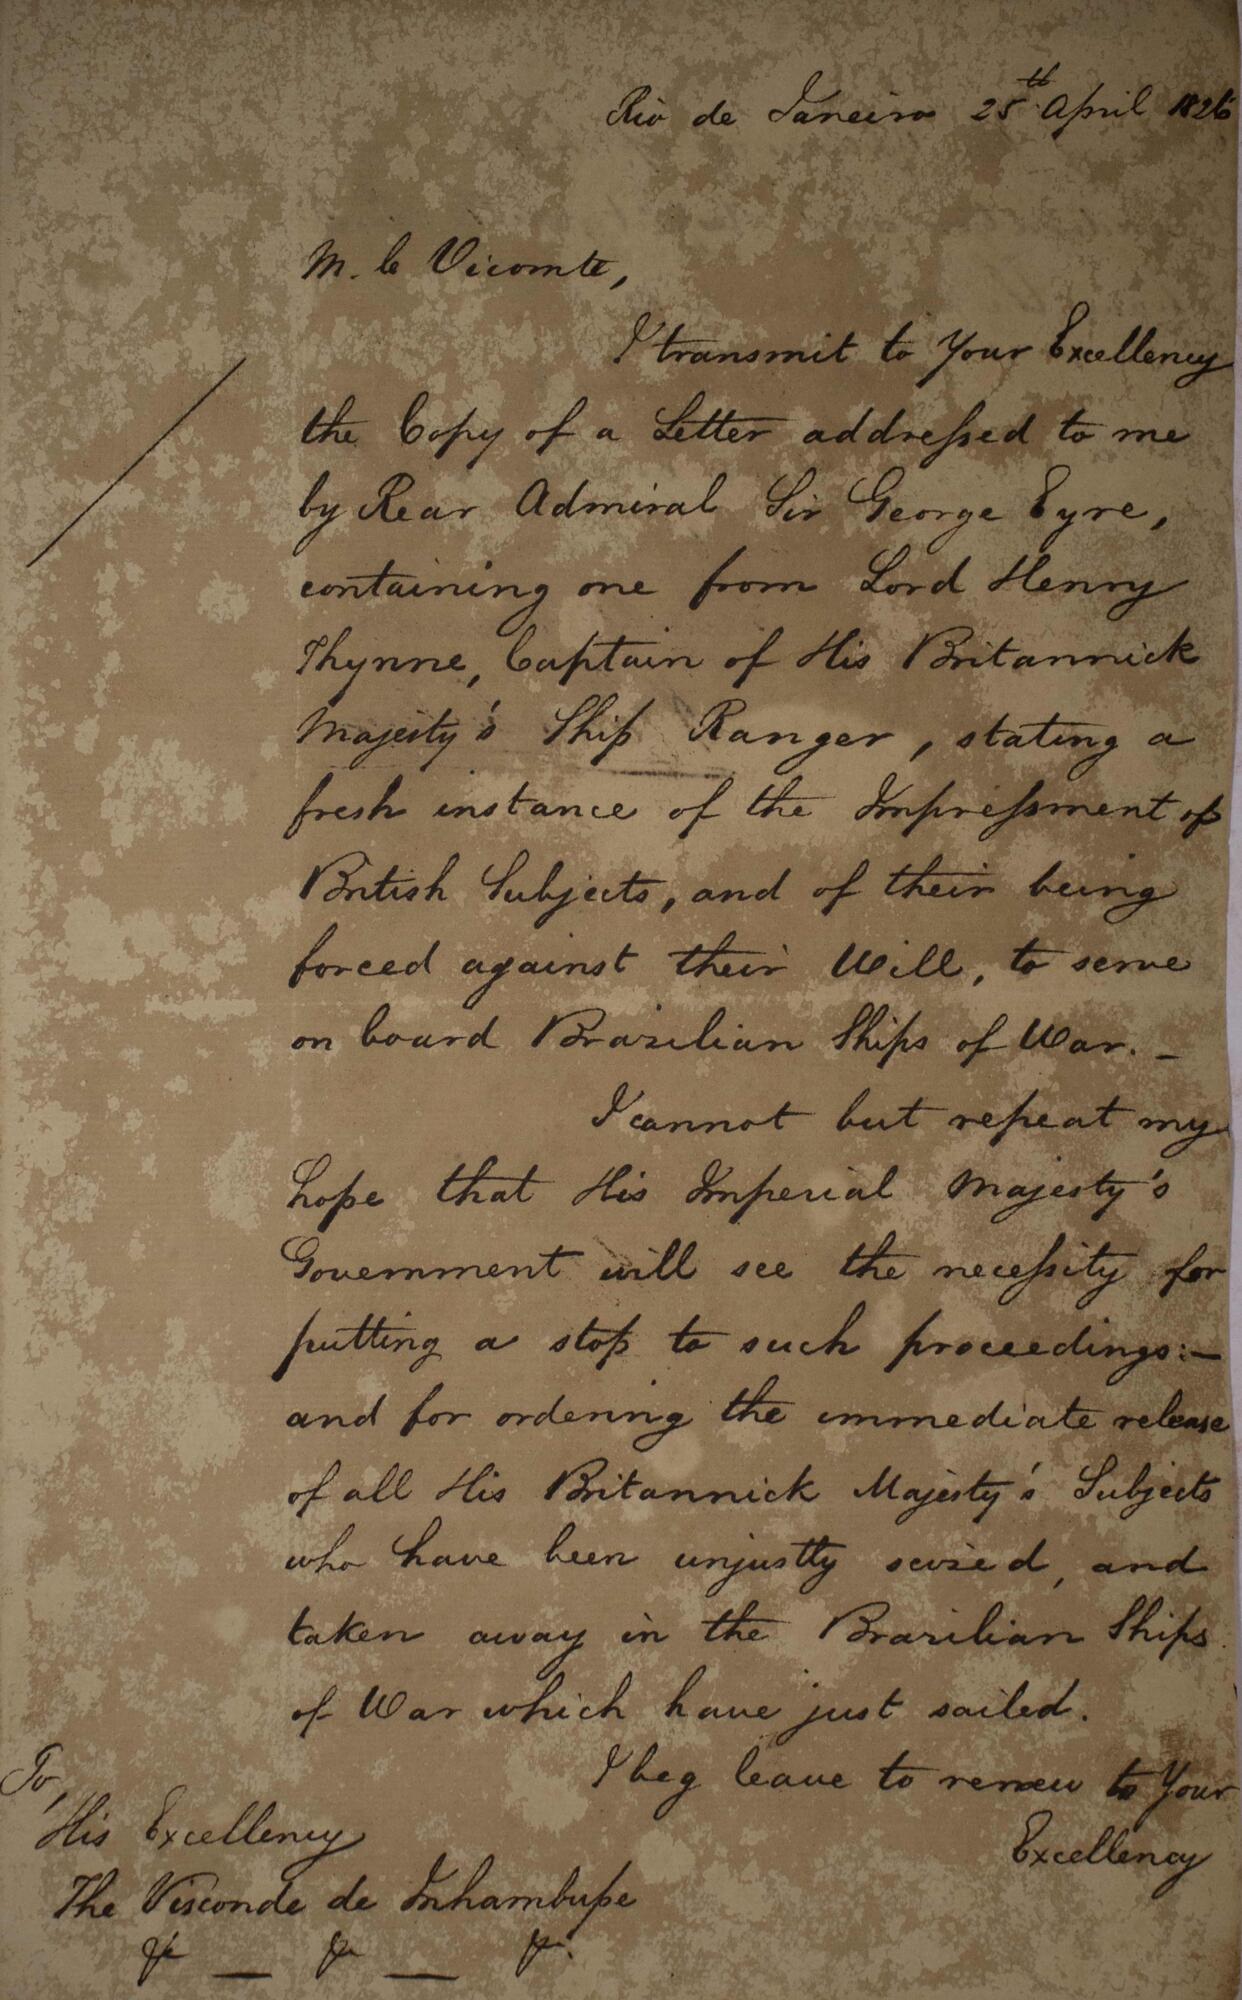 Rio de Janeiro 25th April 1826
M. le Vicomte,
I transmit to Your Excellency
the Copy of a Letter addreſsed to me
by Rear Admiral Sir George Eyre,
containing one from Lord Henry
Thynne, Captain of His Britannick
Majesty's Ship Ranger, stating a
fresh instance of the Impreſsment of
British Subjects, and of their being
forced against their Will, to serve
on board Brazilian Ships of War. _
I cannot but repeat my
hope that His Imperial Majesty's
Government will see the neceſsity for
putting a stop to such proceedings:—
and for ordering the immediate release
of all His Britannick Majesty's Subjects
who have been unjustly seized, and
taken away in the Brazilian Ships
of War which have just sailed.
I beg leave to renew to Your
Excellency
To,
His Excellency
The Visconde de Inhambupe
&c — &c — &c.